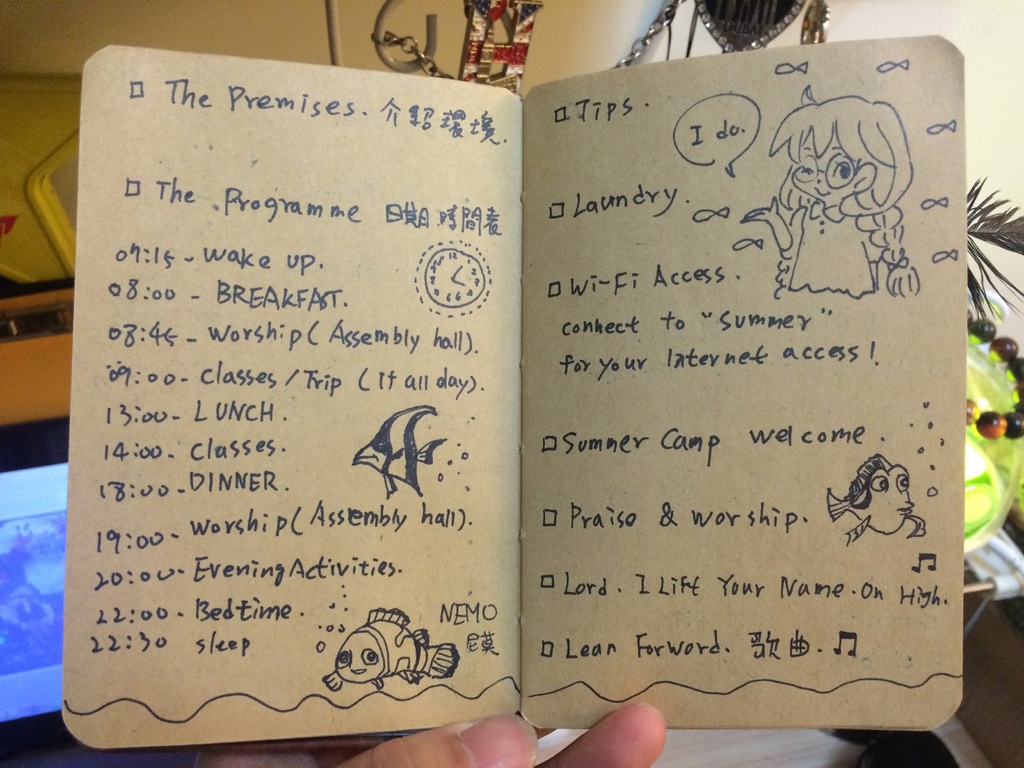 The Premises. 介紹環境.
The Programme 日期時間表
07:15 - Wake up.
08:00 - BREAKFAST.
08:45 - Worship (Assembly hall).
09:00 - Classes / Trip (If all day).
13:00 - LUNCH.
14:00 - Classes.
18:00 - DINNER.
19:00 - Worship (Assembly hall).
20:00 - Evening Activities.
22:00 - Bedtime.
22:30 sleep
NEMO
尼莫
Tips.
I do.
Laundry.
Wi-Fi Access.
connect to "Summer"
for your Internet access!
Summer Camp welcome.
Praise & worship.
Lord. I Lift Your Name. On High.
Lean Forward. 歌曲.